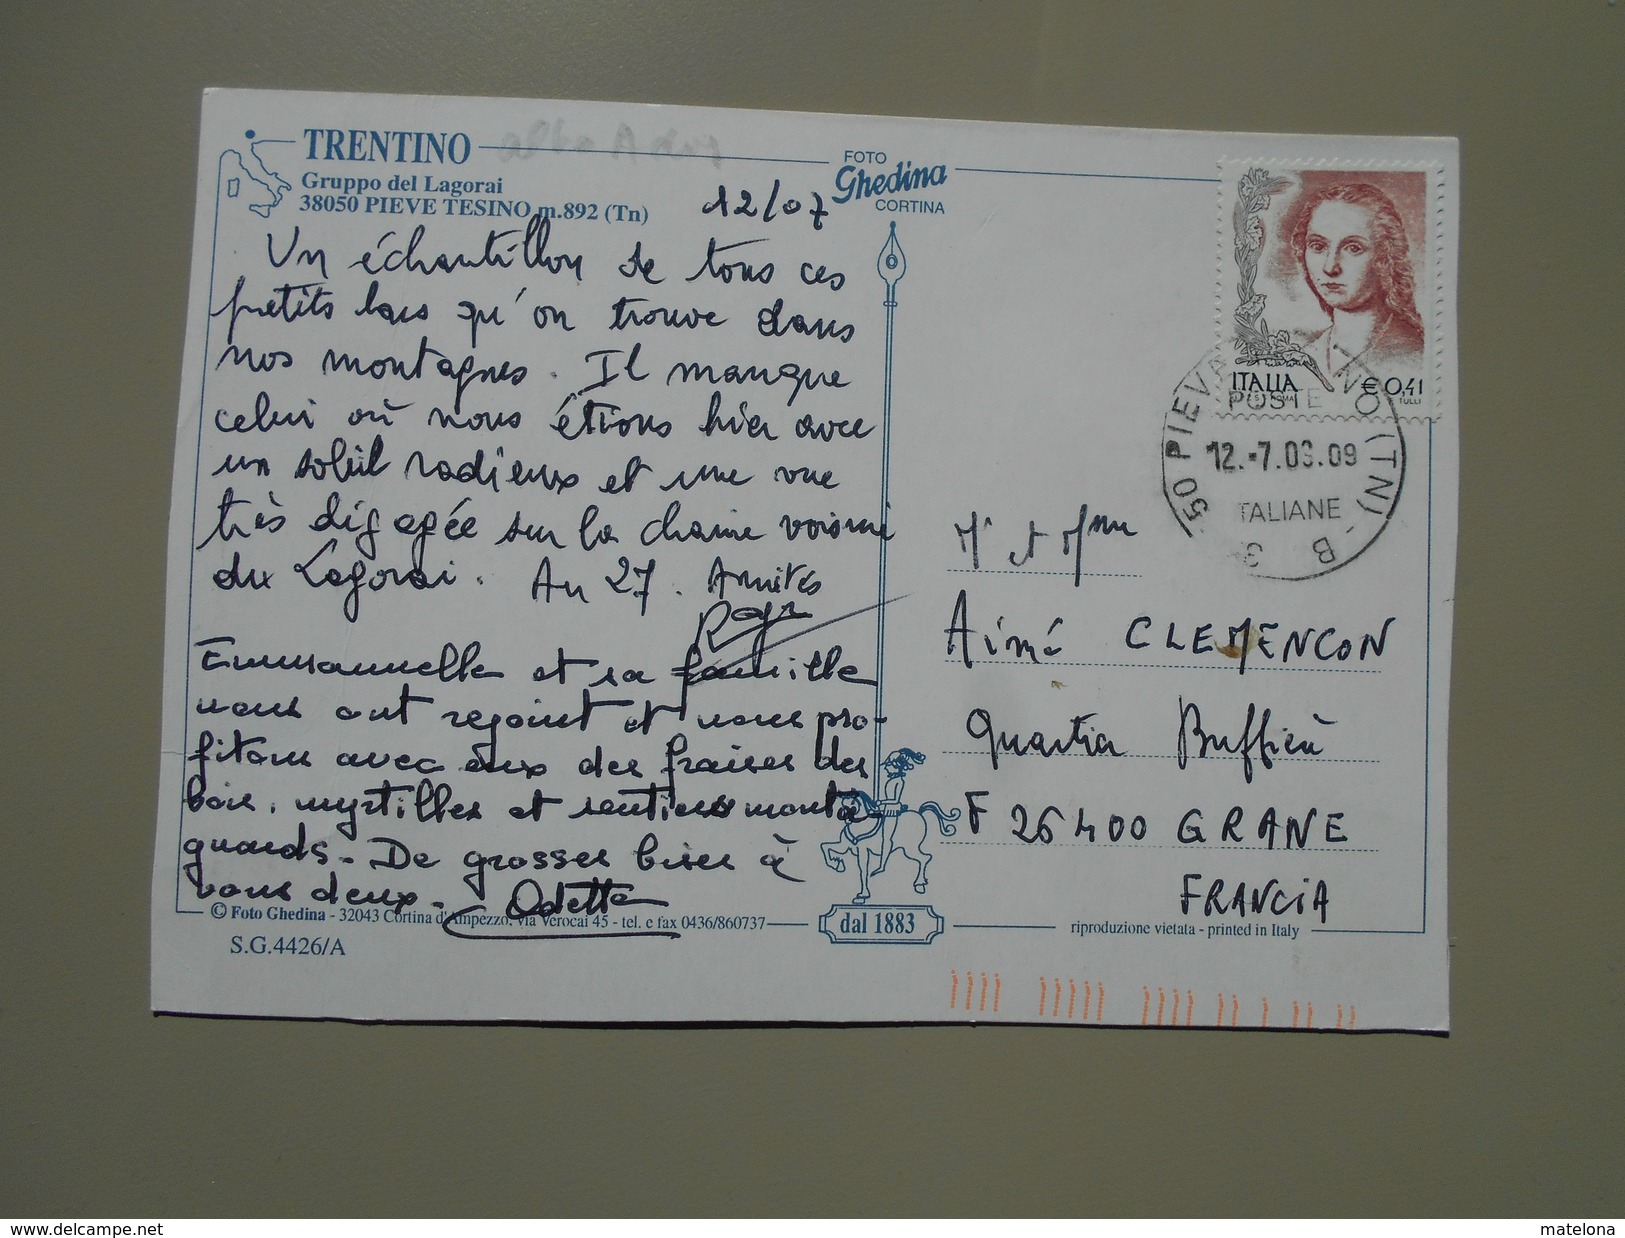 TRENTINO
Gruppo del Lagorai
38050 PIEVE TESINO m.892 (Tn)
FOTO
Ghedina
CORTINA
12/07
Un échantillon de tous ces
petits lacs qu'on trouve dans
nos montagnes. Il manque
celui où nous étions hier avec
un soleil radieux et une vue
très dégagée sur la chaine voisine
du Lagorai. Au 27. Amitiés
Roger
Emmanuelle et sa famille
nous ont rejoint et nous pro-
fitons avec eux des fraises des
bois, myrtilles et sentiers monta-
gnards. De grosses bises à
vous deux. Odette
© Foto Ghedina - 32043 Cortina d'Ampezzo, via Verocai 45 - tel. e fax 0436/860737
S.G.4426/A
dal 1883
ITALIA
€ 0,41
TULLI
POSTE
12.-7.03.09
ITALIANE
(TN) - B
Mr et Mme
Aimé CLEMENCON
Quartier Buffière
F 26400 GRANE
FRANCIA
riproduzione vietata - printed in Italy
http://www.delcampe.net
matelona